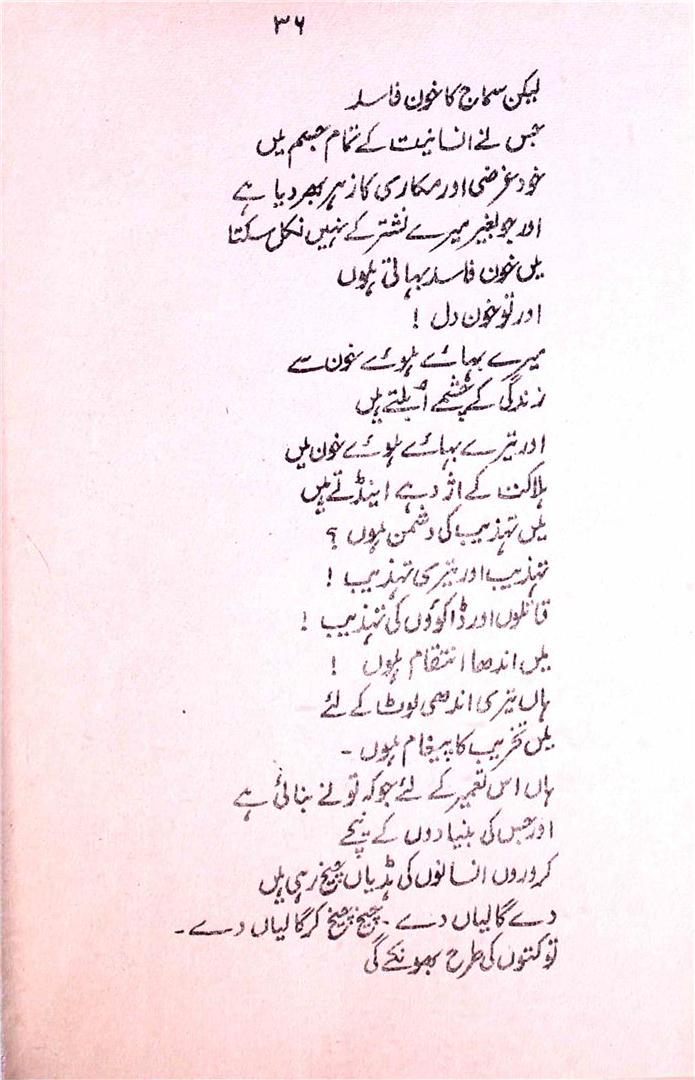 ۳۶
لیکن سماج کا خون فاسد
جس نے انسانیت کے تمام جسم میں
خود غرضی اور مکاری کا زہر بھر دیا ہے
اور جو بغیر میرے نشتر کے نہیں نکل سکتا
میں خون فاسد بہاتی ہوں
اور تو خون دل !
میرے بہائے ہوئے خون سے
زندگی کے چشمے اُبلتے ہیں
اور تیرے بہائے ہوئے خون میں
ہلاکت کے اژدہے اینڈتے ہیں
میں تہذیب کی دشمن ہوں ؟
تہذیب اور تیری تہذیب !
قاتلوں اور ڈاکوؤں کی تہذیب !
میں اندھا انتقام ہوں !
ہاں تیری اندھی لوٹ کے لئے
میں تخریب کا پیغام ہوں ۔
ہاں اس تعمیر کے لئے جو کہ تو نے بنائی ہے
اور جس کی بنیادوں کے نیچے
کروروں انسانوں کی ہڈیاں چیخ رہی ہیں
دے گالیاں دے ۔ چیخ چیخ کر گالیاں دے ۔
تو کتوں کی طرح بھونکے گی